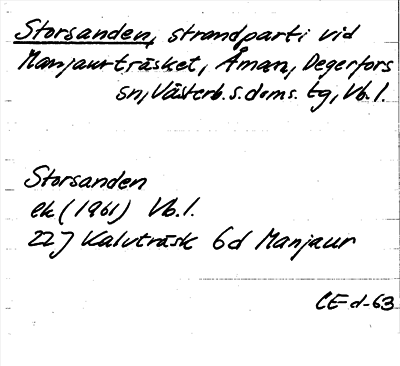 Storsanden, strandparti vid
Manjaurträsket, Åman, Degerfors
sn, Västerb. s. doms. tg, Vb. l.
Storsanden
ek (1961) Vb. l.
22J Kalvträsk 6d Manjaur
CE d-63